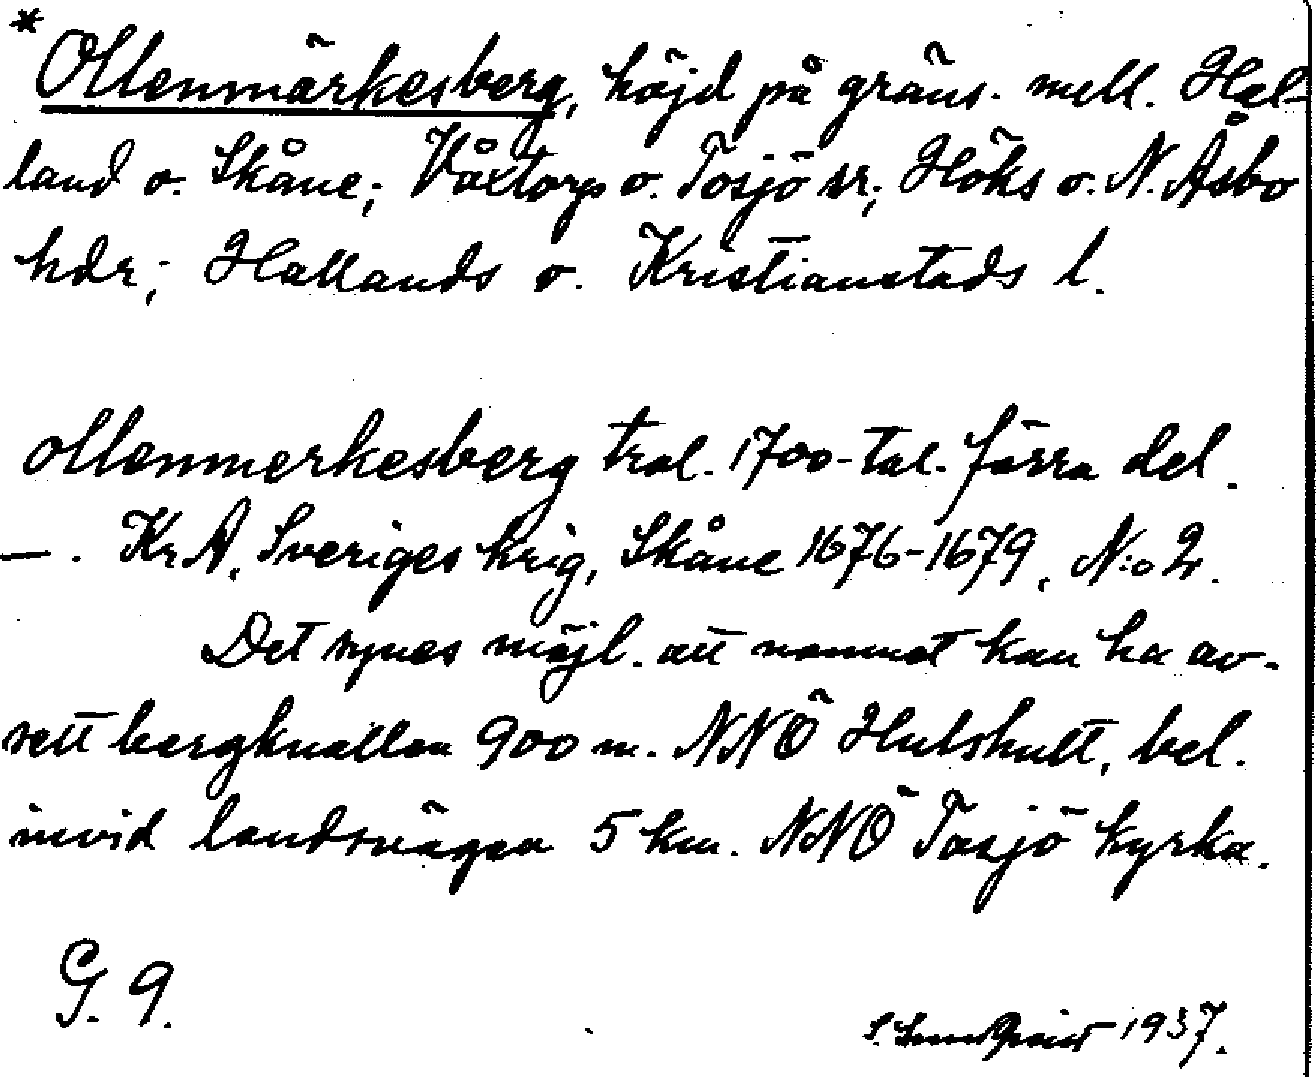 * Ollenmärkesberg, höjd på gräns. mell. Hal-
land o. Skåne; Våxtorp o. Tosjö sr; Höks o. N. Åsbo
hdr; Hallands o. Kristianstads l.
ollenmerkesberg trol. 1700-tal. förra del.
— . KrA, Sveriges krig, Skåne 1676-1679, N:o 2.
Det synes möjl. att namnet kan ha av-
sett bergknallen 900 m. NNÖ Hulshult, bel.
invid landsvägen 5 km. NNÖ Tosjö kyrka.
G. 9.
1937.